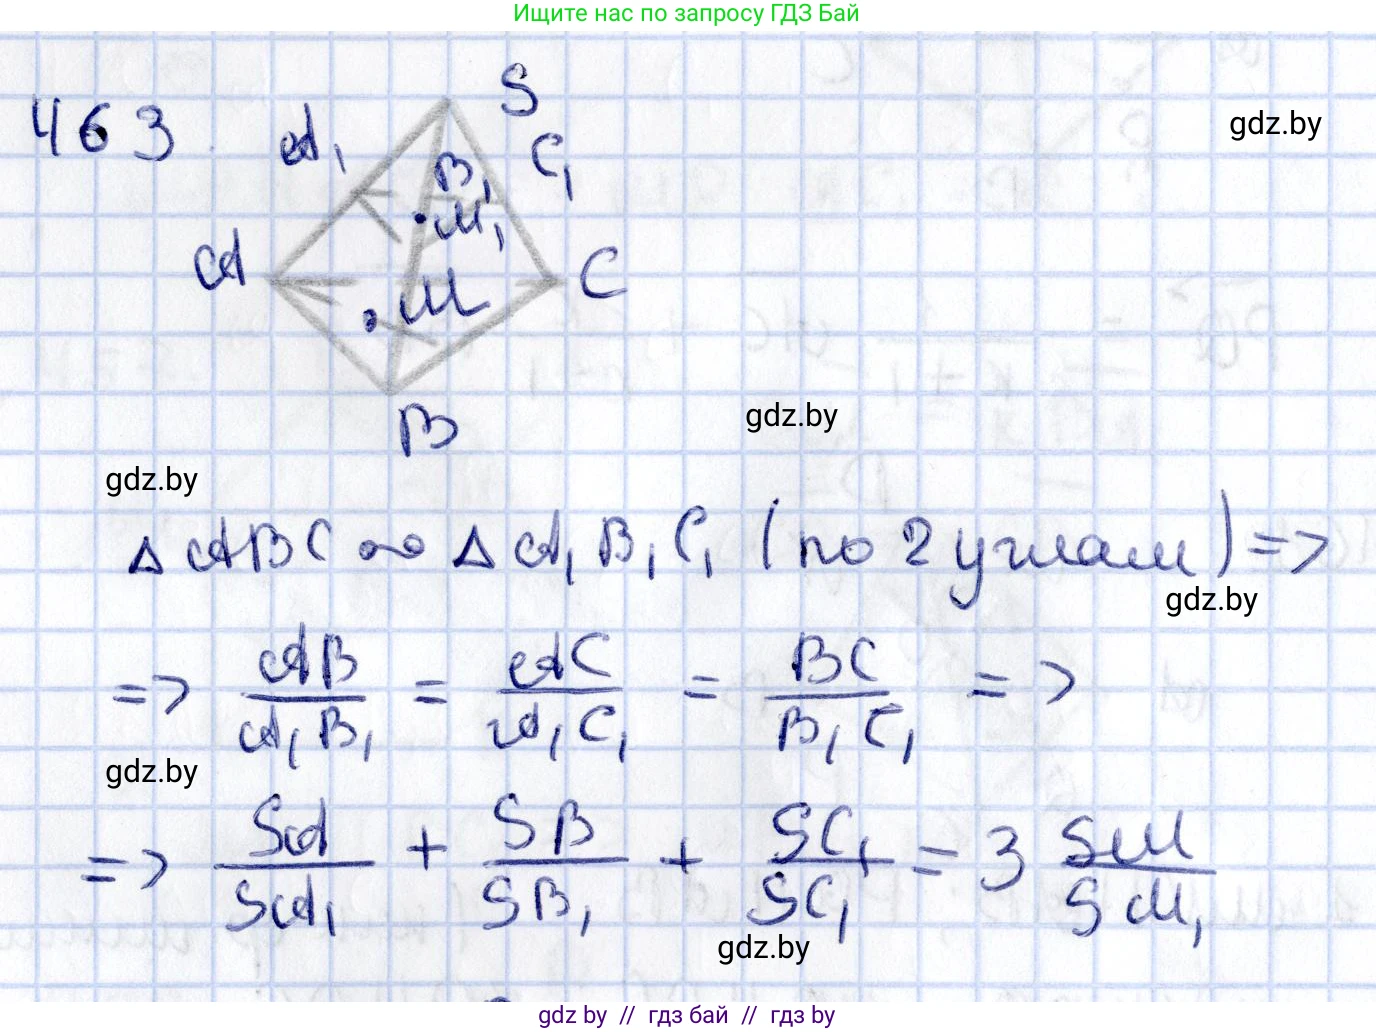 Ищите нас по запросу ГДЗ Бай
463
S
A₁
C₁
gdz.by
B₁
M₁
A
C
M
B
gdz.by
gdz.by
Δ ABC ∾ Δ A₁B₁C₁ (по 2 углам) =>
gdz.by
=> AB/A₁B₁ = AC/A₁C₁ = BC/B₁C₁ =>
gdz.by
=> SA/SA₁ + SB/SB₁ + SC₁/SC₁ = 3 SM/SM₁
gdz.by
gdz by // гдз бай // гдз by